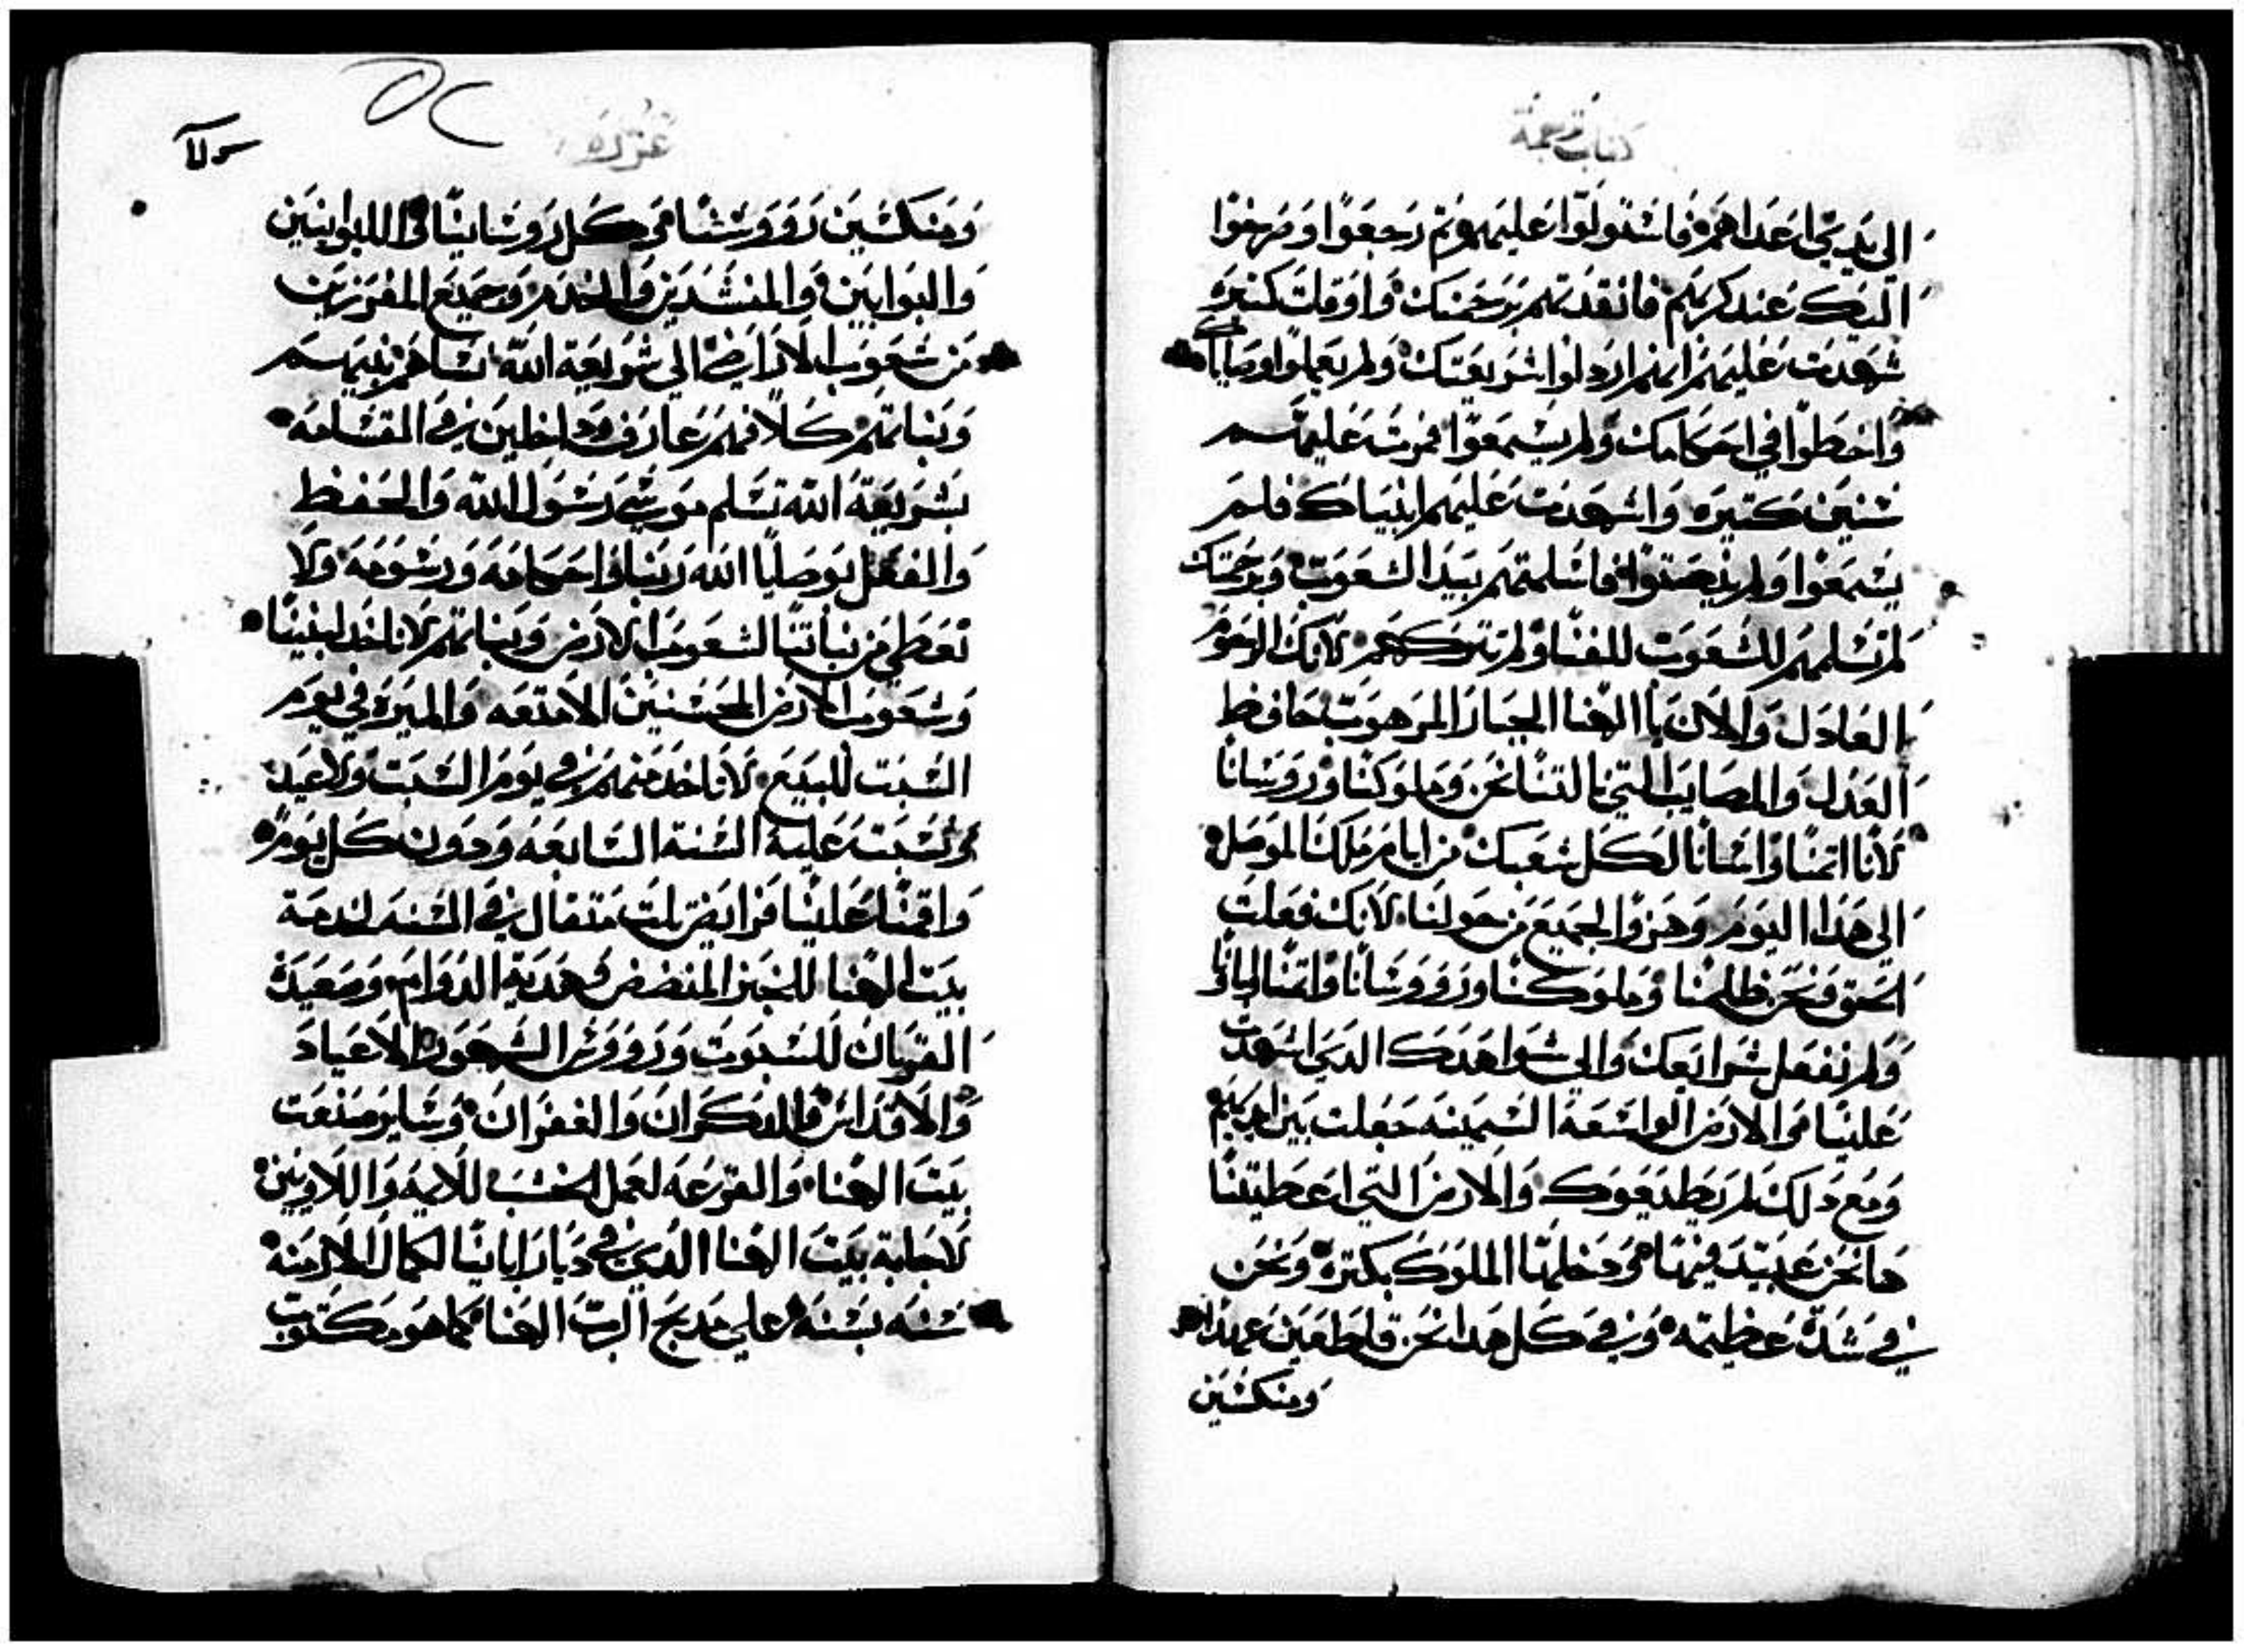 كتاب قصة
الى يدي اعداهم فاشتولوا عليهم وتم رجعوا وصرخوا
اليك عند كربهم فانقدتهم برحمتك واوقات كتيره
شهدت عليهم انهم اردلوا شريعتك ولم يعملوا وصاياك
واخطوا في احكامك ولم يسمعوا فمرت عليهم
سنين كتيره واشهدت عليهم انبياك فلم
يسمعوا ولم ينصتوا فاسلمتهم بيد الشعوب وبرحمتك
لم تسلمهم للشعوب للفنا ولم تتركهم لانك الرحوم
العادل والان يا الهنا الجبار المرهوب حافظ
العدل والمصايب التي نالتنا نحن وملوكنا ورووسانا
لانا اتمنا واسانا لكل شعبك من ايام ملك الموصل
الى هدا اليوم وهزوا الجميع من حولنا لانك فعلت
الحق ونحن ظلمنا وملوكنا ورووسانا وايمتنا اباونا
ولم نفعل شرايعك والى شواهدك الدي اشهدت
علينا والارض الواسعة السمينه جعلت بين ايديهم
ومع دلك لم يطيعوك والارض التي اعطيتنا
ها نحن عبيد فيها ودخلها الملوك بكترة ونحن
في شدة عظيمه وفي كل هدا نحن قاطعين عهدا
ومنكسين
عزره
ومنكسين رووسنا وكل رووساينا واللوانيين
والبوابين والمنشدين والخدم وجميع المفرزين
من شعوب الاراضي الى شريعة الله نساهم بنيهم
وبناتهم كلا فهم عارف داخلين في القسامه
بشريعة الله تسلم موسى رسول الله والحفظ
والفعل بوصايا الله ربنا واحكامه ورسومه ولا
نعطي من بناتنا لشعوب الارض وبناتهم لا ناخد لبنينا
وشعوب الارض المحسنين الامتعه والميرة في يوم
السبت للبيع لا ناخد منهم في يوم السبت ولا عيد
ونسبت غلية السنة السابعه وديون كل يوم
واقمنا علينا فرايض تلت متقال في السنه لخدمة
بيت الهنا للخبز المنضض وهدية الدوام وصعيدة
القربان للسبوت ورووس الشهور والاعياد
والاقداس والدكران والغفران وساير صنعت
بيت الهنا والقرعه لعمل الخشب للايمه واللاويين
لاجابة بيت الهنا الدي في ديار ابانينا لكمال الازمنه
سنه بسنه على مدبح الرب الهنا كما هو مكتوب